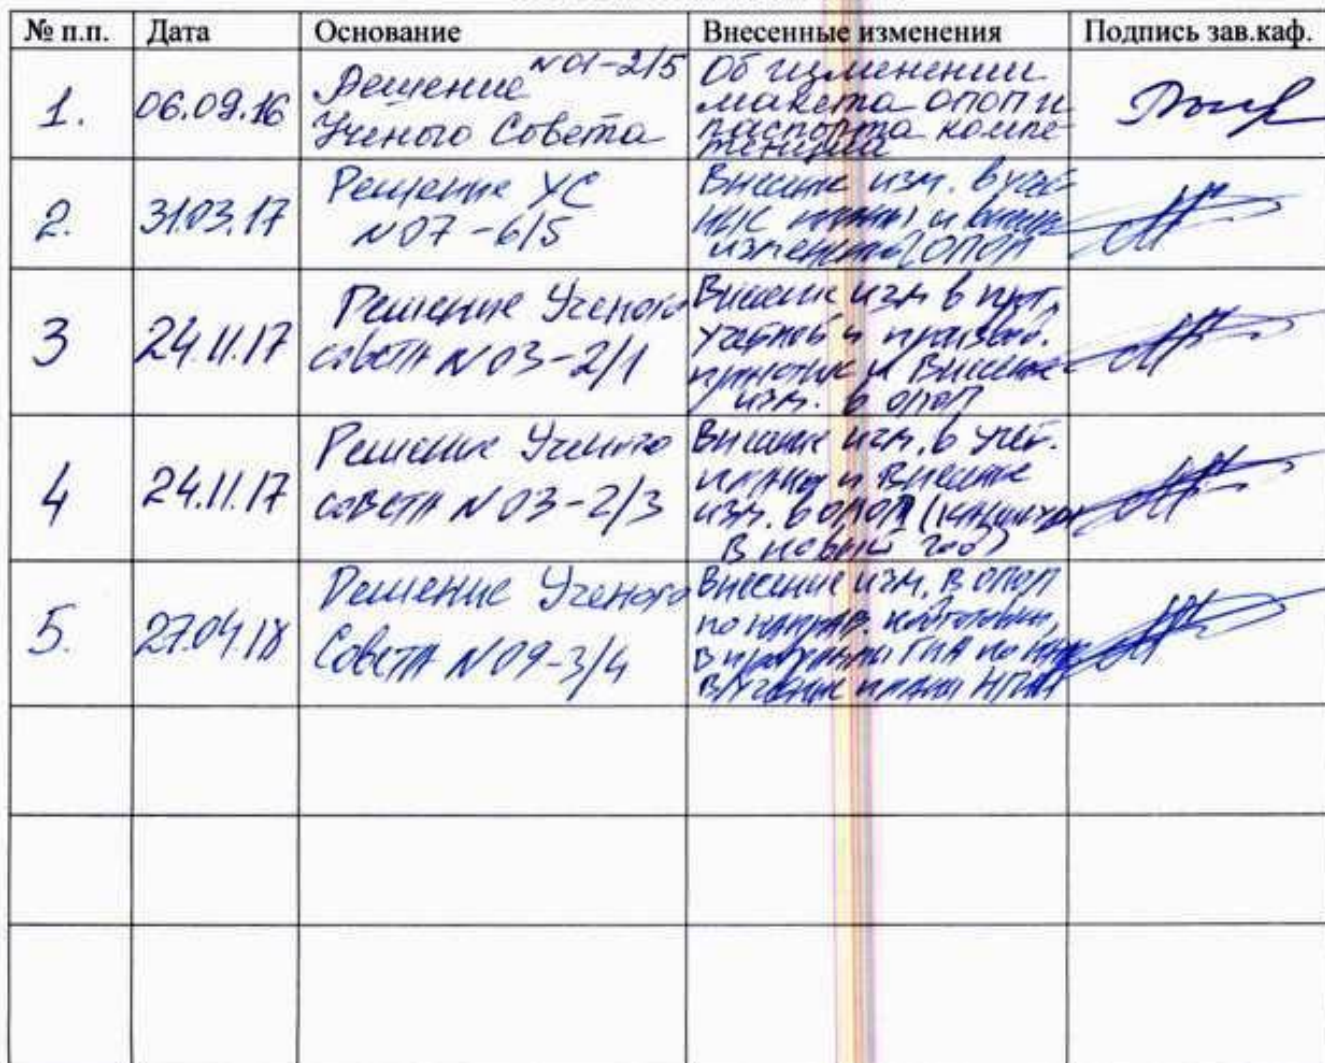 № п.п. Дата Основание Внесенные изменения Подпись зав.каф.
1. 06.09.16 Решение №01-2/5 Ученого Совета
Об изменении
макета ОПОП и
паспорта компе-
тенций
2. 31.03.17 Решение УС
№07-6/5
Внесение изм. в учеб-
ные планы и
изменений ОПОП
3 24.11.17 Решение Ученого
совета №03-2/1
Внесение изм в
учебной и производ.
практик и Внесение
изм. в ОПОП
4 24.11.17 Решение Ученого
совета №03-2/3
Внесение изм. в учеб.
планы и Внесение
изм. в ОПОП
в новый год)
5. 27.04.18 Решение Ученого
Совета №09-3/4
Внесение изм. в ОПОП
по направ. подготовки,
в программы ГИА по
в учебные планы